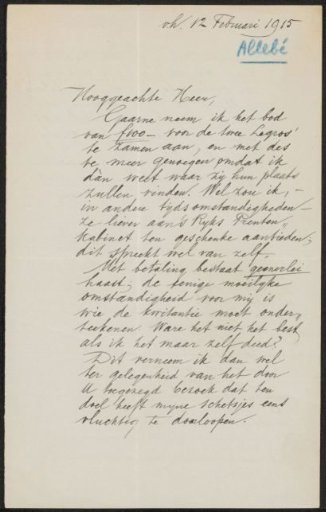 12 Februari 1915
Allebé
Hooggeachte Heer,
Gaarne neem ik het bod
van f100– voor de twee Legros'
te zamen aan, en met des
te meer genoegen omdat ik
dàn weet waar zij hun plaats
zullen vinden. Wel zou ik, –
in andere tydsomstandigheden –
ze liever aan 's Ryks Prenten„
kabinet ten geschenke aanbieden,
dit spreekt wel van zelf.
Met betaling bestaat geenerlei
haast; de eenige moeilyke
omstandigheid voor my is
wie de kwitantie moet onder„
teekenen. Ware het niet het best
als ik het maar zelf deed?
Dit verneem ik dan wel
ter gelegenheid van het door
U toegezegd bezoek dat ten
doel heeft myne schetsjes eens
vluchtig te doorloopen.